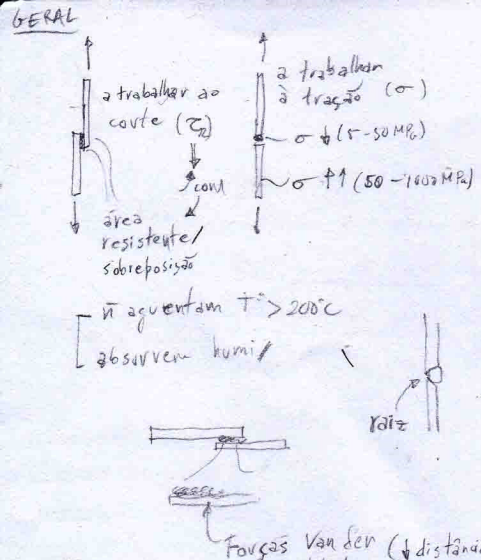 GERAL
a trabalhar ao
corte (τR)
área
resistente/
sobreposição
a trabalhar
à tração (σ)
σ ↓ (5-50 MPa)
σ ↑↑ (50-1000 MPa)
ñ aguentam Tª > 200°C
absorvem humi/
raiz
Forças Van der (↓ distância